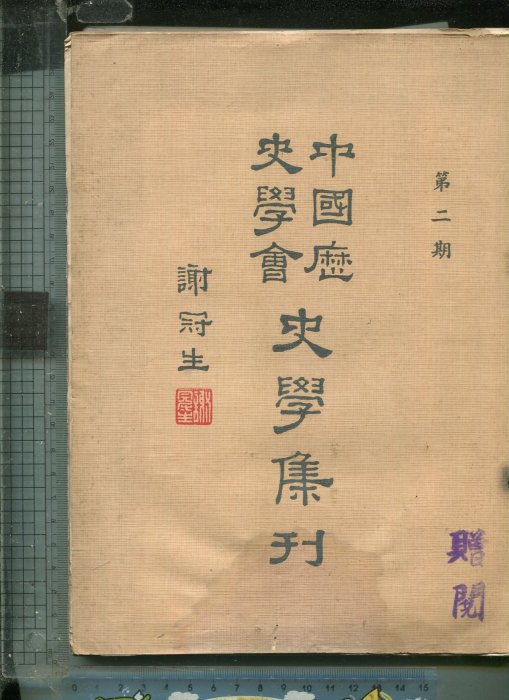 第二期
中國歷
史學會
史學集刊
謝冠生
贈閱
0 1 2 3 4 5 6 7 8 9 10 11 12 13 14 15